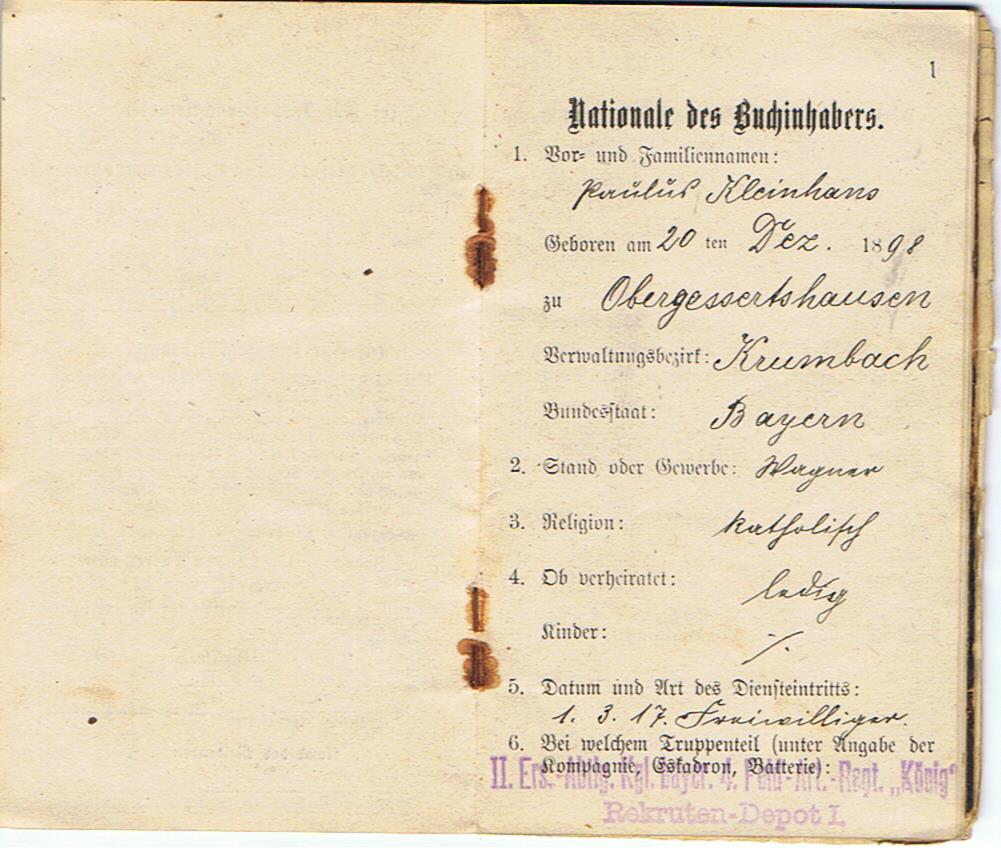 1
Nationale des Buchinhabers.
1. Vor- und Familiennamen:
Paulus Kleinhans
Geboren am 20 ten Dez. 1898
zu Obergessertshausen
Verwaltungsbezirk: Krumbach
Bundesstaat: Bayern
2. Stand oder Gewerbe: Wagner
3. Religion: katholisch
4. Ob verheiratet: ledig
Kinder: ⁒
5. Datum und Art des Diensteintritts:
1. 3. 17. Freiwilliger.
6. Bei welchem Truppenteil (unter Angabe der
Kompagnie, Eskadron, Batterie):
II. Ers.-Abtlg. Kgl. Bayer. 4. Feld-Art.-Regt. „König"
Rekruten-Depot I.